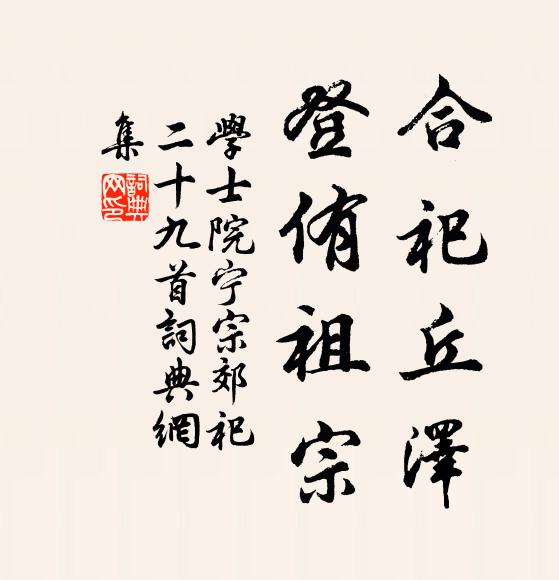 合祀丘澤
登侑祖宗
學士院宁宗郊祀
二十九首詞典網
集
詞典网印